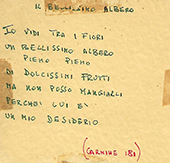 IL BELLISSIMO ALBERO
IO VIDI TRA I FIORI
UN BELLISSIMO ALBERO
PIENO PIENO
DI DOLCISSIMI FRUTTI
MA NON POSSO MANGIARLI
PERCHÉ LUI È
UN MIO DESIDERIO
(CARMINE '81)